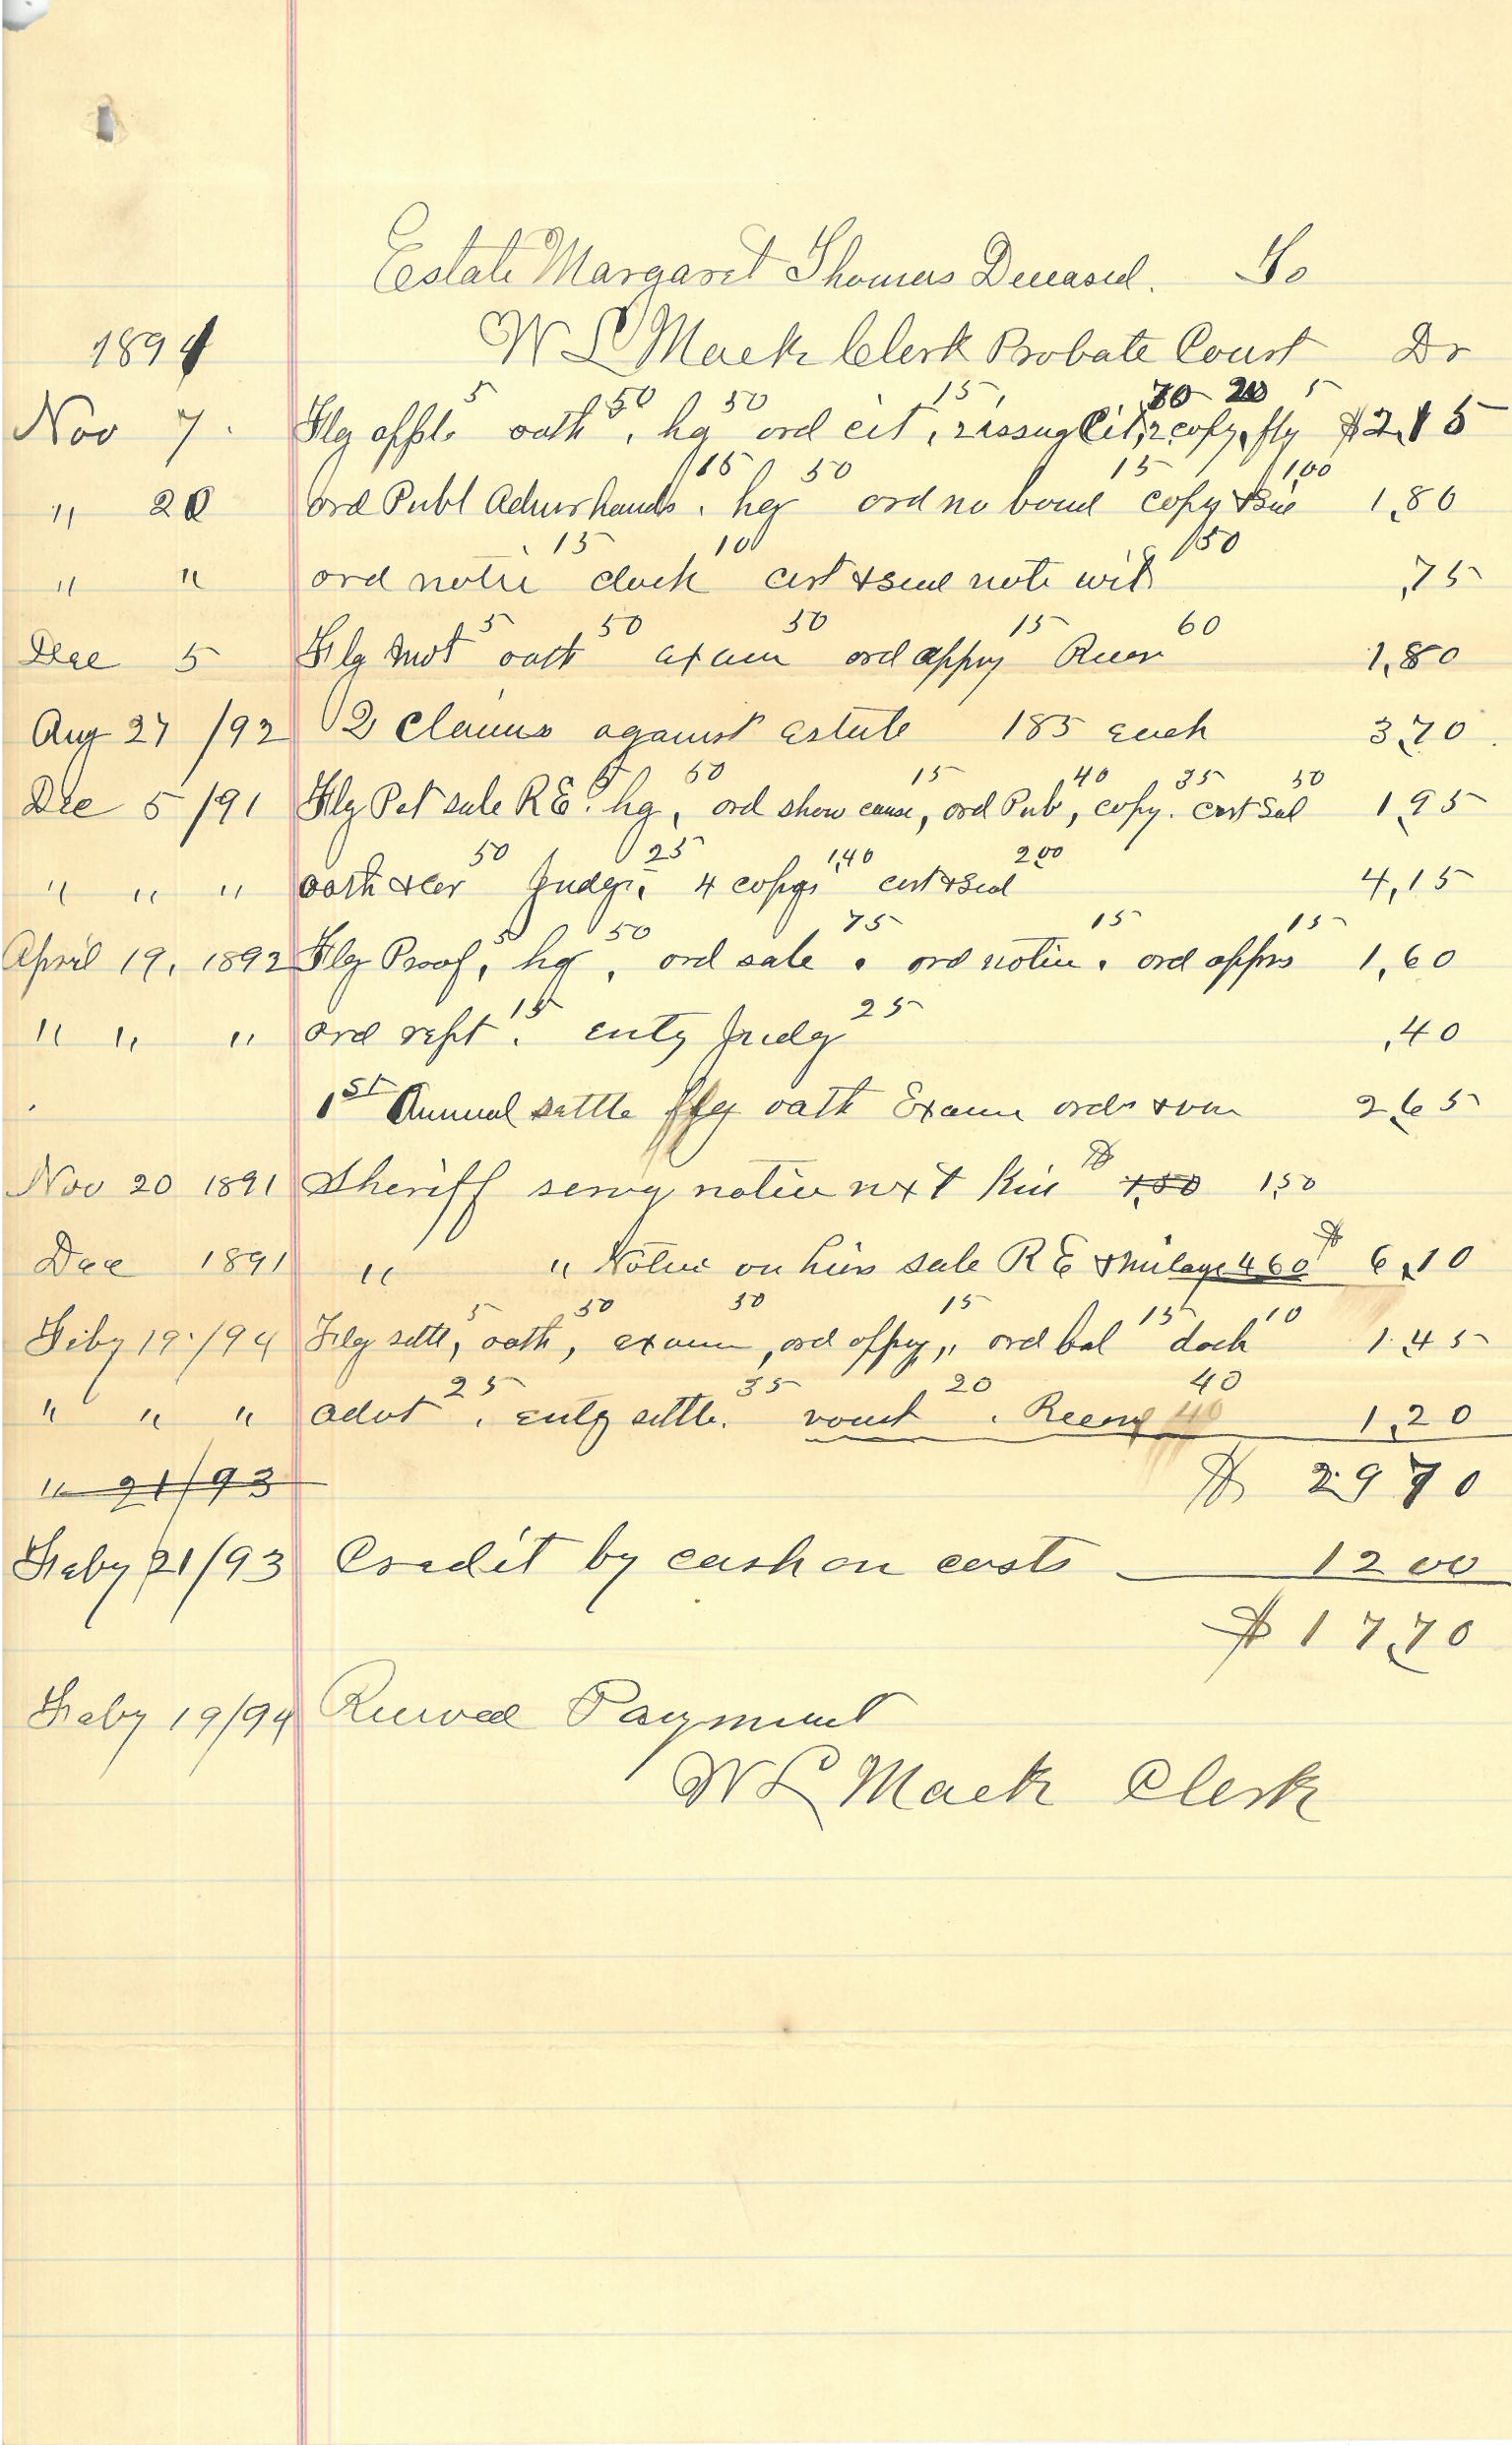 Estate Margaret Thomas Deceased. To
1891 W L Mack Clerk Probate Court Dr
5 50 50 15 70 20 5
Nov 7. Flg appl. oath, hg ord cit, 2 issug Cit, 2 copy, flg $2.15
15 50 15 1,00
" 20 ord Publ Admr hands. hg ord no bond copy & 1,80
15 10 50
" " ord notice dock cert & seal note wit ,75
5 50 50 15 60
Dec 5 Flg mot oath exam ord appvg Recor 1,80
Aug 27 /92 2 Claims against Estate 185 each 3,70
5 50 15 40 35 50
Dec 5/91 Flg Pet sale R E. hg, ord show cause, ord Pub, copy. cert Seal 1,95
50 25 1,40 2,00
" " " oath & cer Judg, 4 copys cert & Seal 4,15
5 50 75 15 15
April 19, 1892 Flg Proof, hg, ord sale. ord notice. ord apprs 1,60
15 25
" " " ord rept. entg Judg ,40
1st Annual settle flg oath Exam ords & 2,65
Nov 20 1891 Sheriff servg notice nxt Kin $ 1,50 1,50
Dec 1891 " " Notice on hirs sale R E & milage 4 60 $ 6,10
5 50 50 15 15 10
Feby 19./94 Flg settl, oath, exam, ord appvg,, ord bal dock 1.45
25 35 20 40
" " " advt. entg settle. vouch. Recong 40 1,20
" 21/93 $ 29 70
Feby 21/93 Credit by cash on costs 12 00
$ 17,70
Feby 19/94 Received Payment
W L Mack Clerk